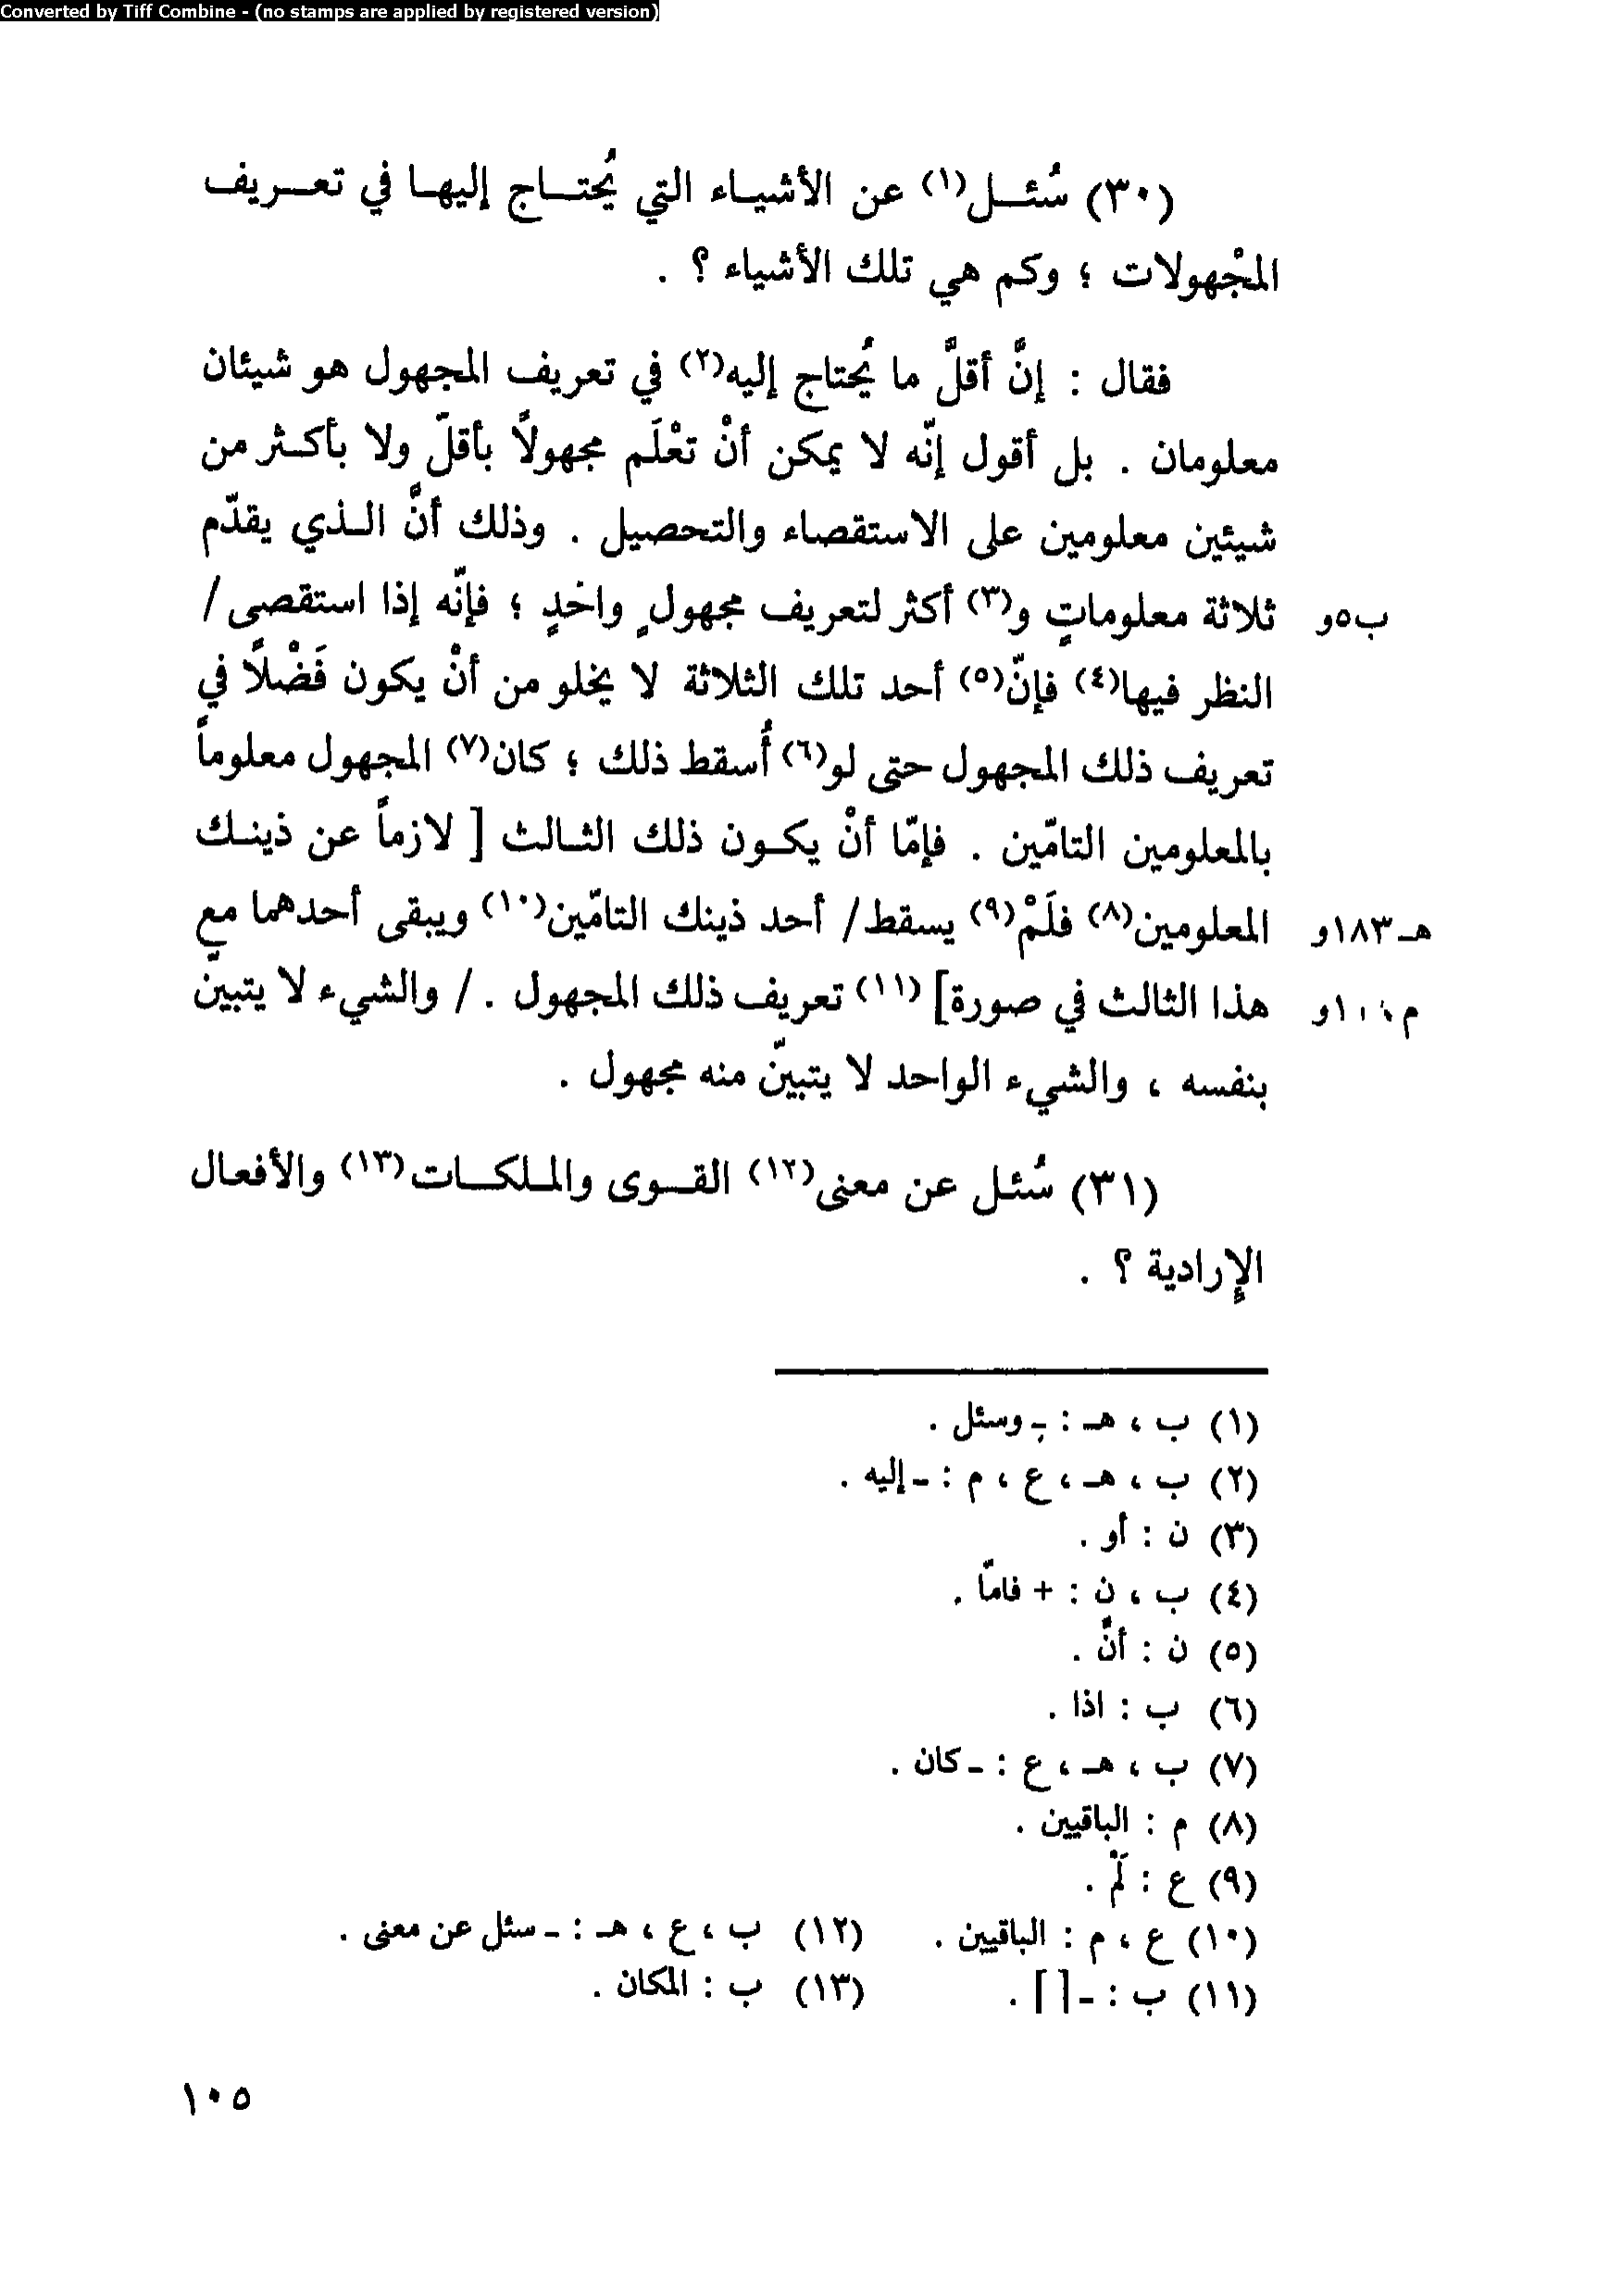 Converted by Tiff Combine - (no stamps are applied by registered version)
(٣٠) سُئــل(١) عن الأشيــاء التي يُحتــاج إليهـا في تعــريف
المجْهولات ؛ وكم هي تلك الأشياء ؟ .
فقال : إنَّ أقلَّ ما يُحتاج إليه(٢) في تعريف المجهول هو شيئان
معلومان . بل أقول إنّه لا يمكن أنْ تعْلَم مجهولاً بأقلّ ولا بأكـثر من
شيئين معلومين على الاستقصاء والتحصيل . وذلك أنَّ الـذي يقدّم
ثلاثة معلوماتٍ و(٣) أكثر لتعريف مجهولٍ واحدٍ ؛ فإنّه إذا استقصى/ ب٥و
النظر فيها(٤) فإنّ(٥) أحد تلك الثلاثة لا يخلو من أنْ يكون فَضْلاً في
تعريف ذلك المجهول حتى لو(٦) أُسقط ذلك ؛ كان(٧) المجهول معلوماً
بالمعلومين التامّين . فإمّا أنْ يكـون ذلك الثـالث [ لازماً عن ذينـك
المعلومين(٨) فلَمْ(٩) يسقط/ أحد ذينك التامّين(١٠) ويبقى أحدهما مع هـ-١٨٣و
هذا الثالث في صورة](١١) تعريف ذلك المجهول . / والشيء لا يتبينّ
بنفسه ، والشيء الواحد لا يتبينّ منه مجهول .
(٣١) سُئـل عن معنى(١٢) القــوى والملـكــات(١٣) والأفعال
الإرادية ؟ .
(١) ب ، هـ : - وسئل .
(٢) ب ، هـ ، ع ، م : - إليه .
(٣) ن : أو .
(٤) ب ، ن : + فامّا .
(٥) ن : أنَّ .
(٦) ب : اذا .
(٧) ب ، هـ ، ع : - كان .
(٨) م : الباقيين .
(٩) ع : لَمْ .
(١٠) ع ، م : الباقيين . (١٢) ب ، ع ، هـ : - سئل عن معنى .
(١١) ب : - [ ] . (١٣) ب : المكان .
١٠٥